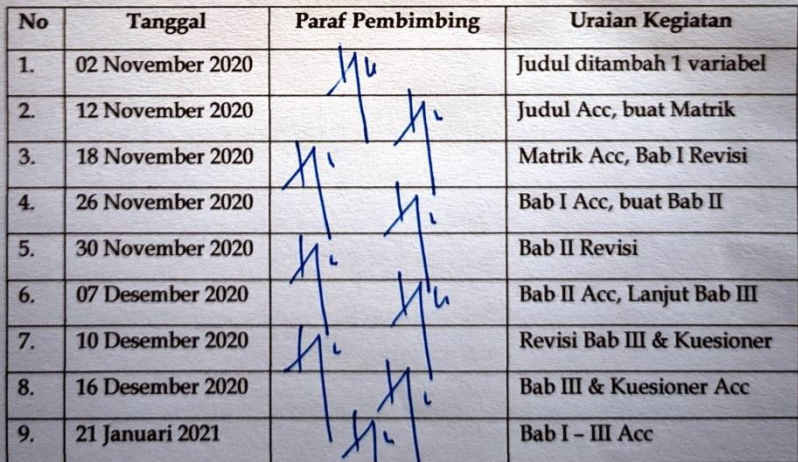 No Tanggal Paraf Pembimbing Uraian Kegiatan
1. 02 November 2020 Judul ditambah 1 variabel
2. 12 November 2020 Judul Acc, buat Matrik
3. 18 November 2020 Matrik Acc, Bab I Revisi
4. 26 November 2020 Bab I Acc, buat Bab II
5. 30 November 2020 Bab II Revisi
6. 07 Desember 2020 Bab II Acc, Lanjut Bab III
7. 10 Desember 2020 Revisi Bab III & Kuesioner
8. 16 Desember 2020 Bab III & Kuesioner Acc
9. 21 Januari 2021 Bab I – III Acc